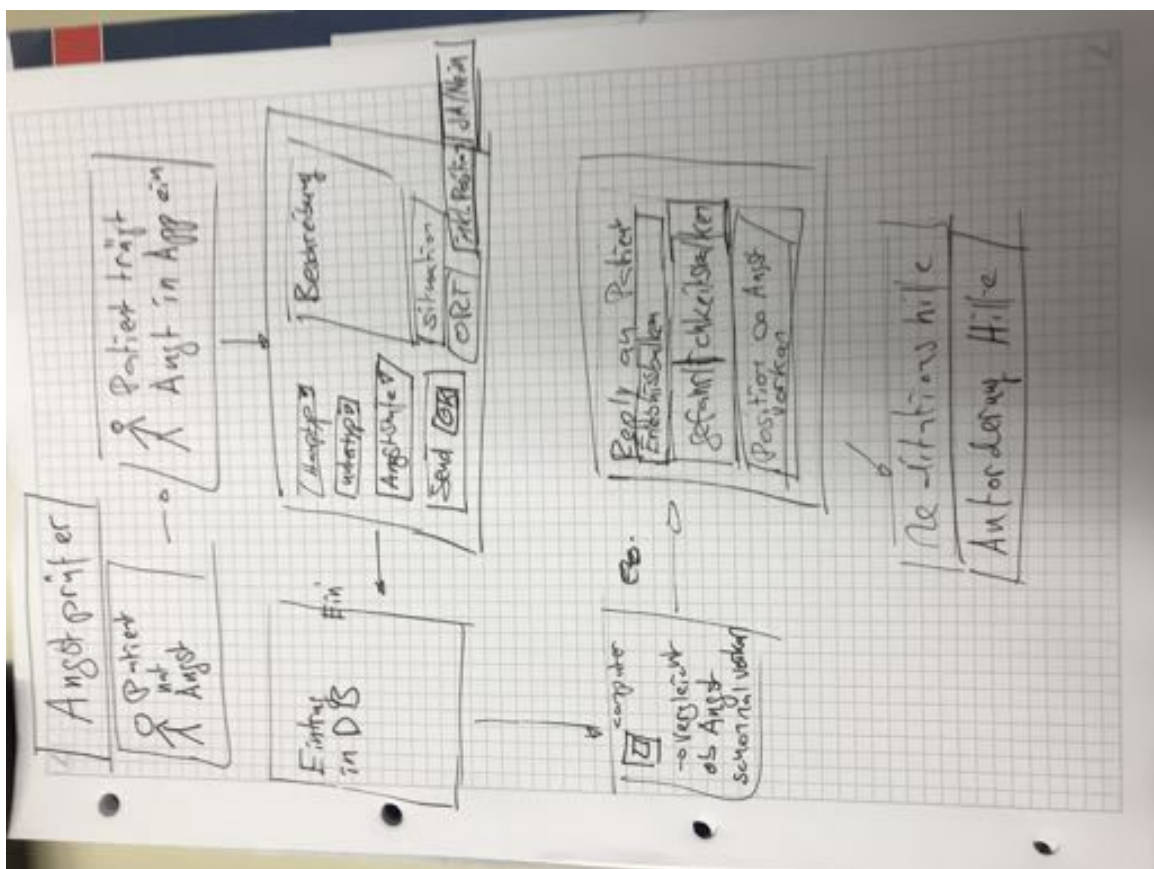 Angstprüfer
Patient
hat
Angst
Patient trägt
Angst in App ein
Haupttyp
Untertyp
Angststufe
Send OK
Beschreibung
Situation
ORT
Akt. Position
JA/Nein
Eintrag
in DB
Ein
computer
→ vergleicht
ob Angst
schonmal vorkam
Reply an Patient
Erlebnisbalken
gefährlichkeitsbalken
Position ob Angst
vorkam
Meditationshilfe
Anforderung Hilfe